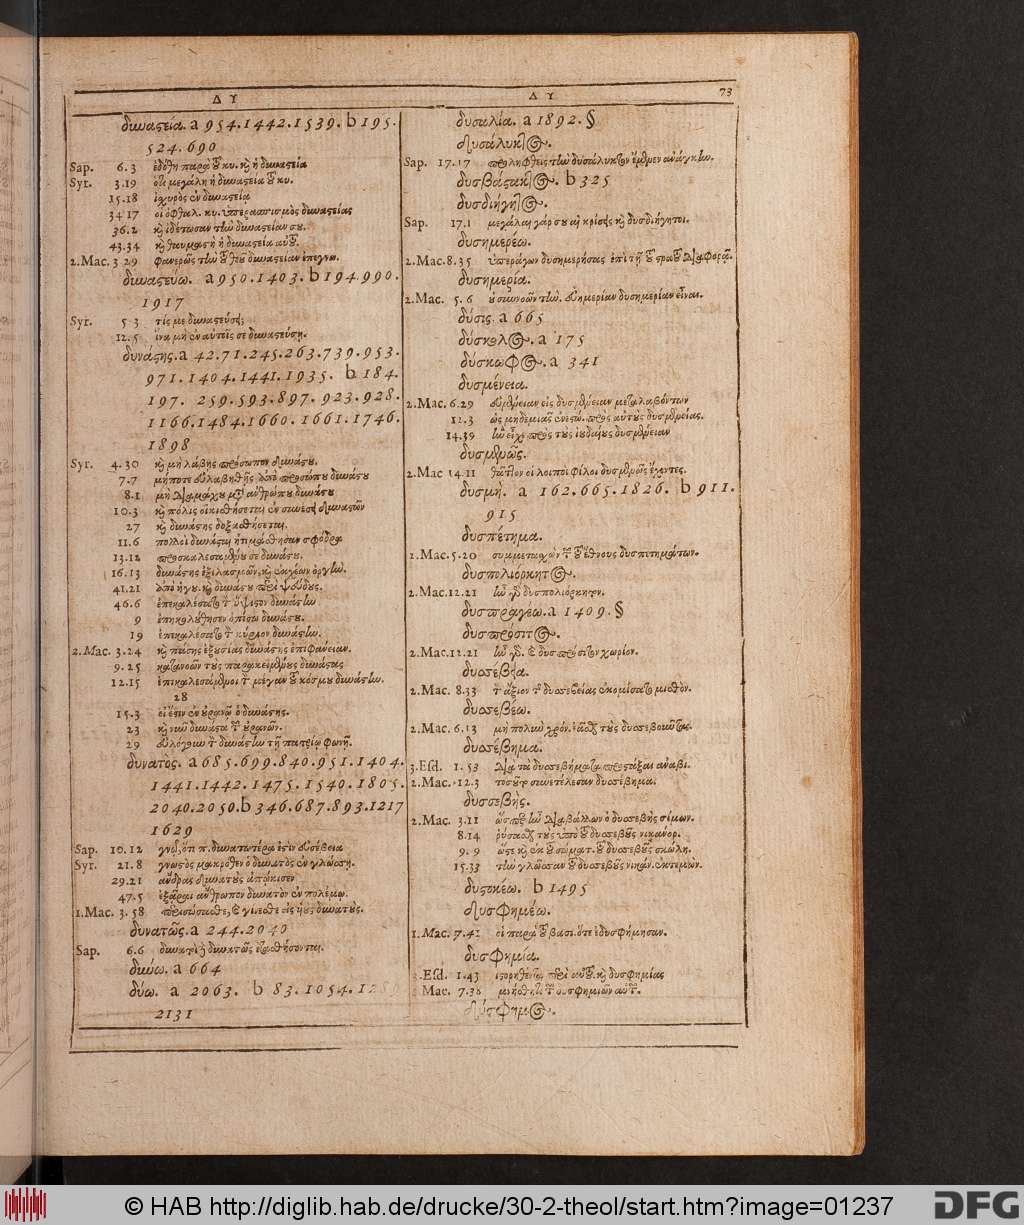 Δ Υ
Δ Υ 73
δυναστεία. a 954.1442.1539. b 195.
524.690
Sap. 6.3 ἐδόθη παρὰ τοῦ κυ. καὶ ἡ δυναστεία
Syr. 3.19 ὅτι μεγάλη ἡ δυναστεία τοῦ κυ.
15.18 ἰσχυρὸς ἐν δυναστεία
34 17 οἱ ὀφθαλ. κυ. ὑπερασπισμὸς δυναστείας
36.2 καὶ ἰδέτωσαν τὴν δυναστείαν σου.
43.34 καὶ θαυμαστὴ ἡ δυναστεία αὐτοῦ.
2.Mac. 3 29 φανερῶς τὴν τοῦ θεοῦ δυναστείαν ἐπεγνω.
δυναστεύω. a 950.1403. b 194.990.
1917
Syr. 5 3 τίς με δυναστεύσει;
12.5 ἵνα μὴ ἐν αὐτοῖς σε δυναστεύσῃ.
δυνάστης. a 42.71.245.263.739.953.
971.1404.1441.1935. b 184.
197. 259.593.897. 923.928.
1166.1484.1660. 1661.1746.
1898
Syr. 4.30 καὶ μὴ λάβῃς πρόσωπον δυνάστου.
7.7 μήποτε εὐλαβηθῇς ἀπὸ προσώπου δυνάστου
8.1 μὴ διαμάχου μετὰ ἀνθρώπου δυνάστου
10.3 καὶ πόλις οἰκισθήσεται ἐν συνέσει δυναστῶν
27 καὶ δυνάστης δοξασθήσεται.
11.6 πολλοὶ δυνάσται ἠτιμάσθησαν σφόδρα
13.12 προσκαλεσαμένου σε δυνάστου.
16.13 δυνάστης ἐξιλασμῶν, καὶ ἐκχέων ὀργήν.
41.21 ἀπὸ ἡγου. καὶ δυνάστου περὶ ψεύδους.
46.6 ἐπεκαλέσατο τὸν ὕψιστον δυνάστην
9 ἐπηκολούθησεν ὀπίσω δυνάστου.
19 ἐπεκαλέσατο τὸν κύριον δυνάστην.
2.Mac. 3.24 καὶ πάσης ἐξουσίας δυνάστης ἐπιφάνειαν.
9.25 κατανοῶν τοὺς παρακειμένους δυνάστας
12.15 ἐπικαλεσάμενοι τὸν μέγαν τοῦ κόσμου δυνάστην.
28
15.3 εἰ ἔστιν ἐν οὐρανῷ ὁ δυνάστης.
23 καὶ νῦν δυνάστα τῶν οὐρανῶν.
29 εὐλόγουν τὸν δυνάστην τῇ πατρίῳ φωνῇ.
δυνατὸς. a 685.699.840.951.1404.
1441.1442.1475.1540.1805.
2040.2050. b 346.687.893.1217
1629
Sap. 10.12 γνῷ, ὅτι π. δυνατωτέρα ἐστὶν εὐσέβεια
Syr. 21.8 γνωστὸς μακρόθεν ὁ δυνατὸς ἐν γλώσσῃ.
29.21 ἄνδρας δυνατοὺς ἀπῴκισεν
47.5 ἐξᾶραι ἄνθρωπον δυνατὸν ἐν πολέμῳ.
1.Mac. 3.58 περιζώσασθε, καὶ γίνεσθε εἰς υἱοὺς δυνατούς.
δυνατῶς. a 244.2040
Sap. 6.6 δυνατοὶ δὲ δυνατῶς ἐτασθήσονται.
δύνω. a 664
δύω. a 2063. b 83.1054.1289
2131
δυσαλία. a 1892. §
δυσάλυκτος.
Sap. 17.17 προληφθεὶς τὴν δυσάλυκτον ἔμενεν ἀνάγκην.
δυσβάστακτος. b 325
δυσδιήγητος.
Sap. 17.1 μεγάλαι γάρ σου αἱ κρίσεις καὶ δυσδιήγητοι.
δυσημερέω.
2.Mac. 8.35 ὑπεράγων δυσημερήσας ἐπὶ τῇ τοῦ στρατοῦ διαφορᾷ.
δυσημερία.
2.Mac. 5.6 οὐ συννοῶν τὴν. εὐημερίαν δυσημερίαν εἶναι.
δύσις. a 665
δύσκολος. a 175
δύσκωφος. a 341
δυσμένεια.
2.Mac. 6.29 εὐμένειαν εἰς δυσμένειαν μεταλαβόντων
12.3 ὡς μηδεμιᾶς ἐνεστώ. πρὸς αὐτοὺς δυσμενείας.
14.39 ἣν εἶχε πρὸς τοὺς ἰουδαίους δυσμένειαν
δυσμενῶς.
2.Mac 14.11 θᾶττον οἱ λοιποὶ φίλοι δυσμενῶς ἔχοντες.
δυσμή. a 162.665.1826. b 911.
915
δυσπέτημα.
1.Mac. 5.20 συμμετασχὼν τῶν τοῦ ἔθνους δυσπετημάτων.
δυσπολιόρκητος.
2.Mac. 12.21 ἦν γὰρ δυσπολιόρκητον.
δυσπραγέω. a 1409. §
δυσπρόσιτος.
2.Mac. 12.21 ἦν γὰρ. καὶ δυσπρόσιτον χωρίον.
δυσσέβεια.
2.Mac. 8.33 τὸν ἄξιον τῆς δυσσεβείας ἐκομίσατο μισθόν.
δυσσεβέω.
2.Mac. 6.13 μὴ πολὺν χρόν. ἐᾶσθαι τοὺς δυσσεβοῦντας.
δυσσέβημα.
3.Esd. 1.53 διὰ τὰ δυσσεβήματα προστάξαι ἀναβι.
2.Mac. 12.3 τοσοῦτο συνετέλεσαν δυσσέβημα.
δυσσεβής.
2.Mac. 3.11 ὥσπερ ἦν διαβάλλων ὁ δυσσεβὴς σίμων.
8.14 ῥύσασθαι τοὺς ὑπὸ τοῦ δυσσεβοῦς νικάνορ.
9. 9 ὥστε καὶ ἐκ τοῦ σώματ. τοῦ δυσσεβοῦς σκώλη.
15.33 τὴν γλῶσσαν τοῦ δυσσεβοῦς νικάν. ἐκτεμών.
δυστοκέω. b 1495
δυσφημέω.
1.Mac. 7.41 οἱ παρὰ τοῦ βασι. ὅτε ἐδυσφήμησαν.
δυσφημία.
3.Esd. 1.43 ἱστορηθέντα περὶ αὐτοῦ. καὶ δυσφημίας
Mac. 7.38 μνήσθητι τῶν δυσφημιῶν αὐτῶν.
δύσφημος.
© HAB http://diglib.hab.de/drucke/30-2-theol/start.htm?image=01237
DFG